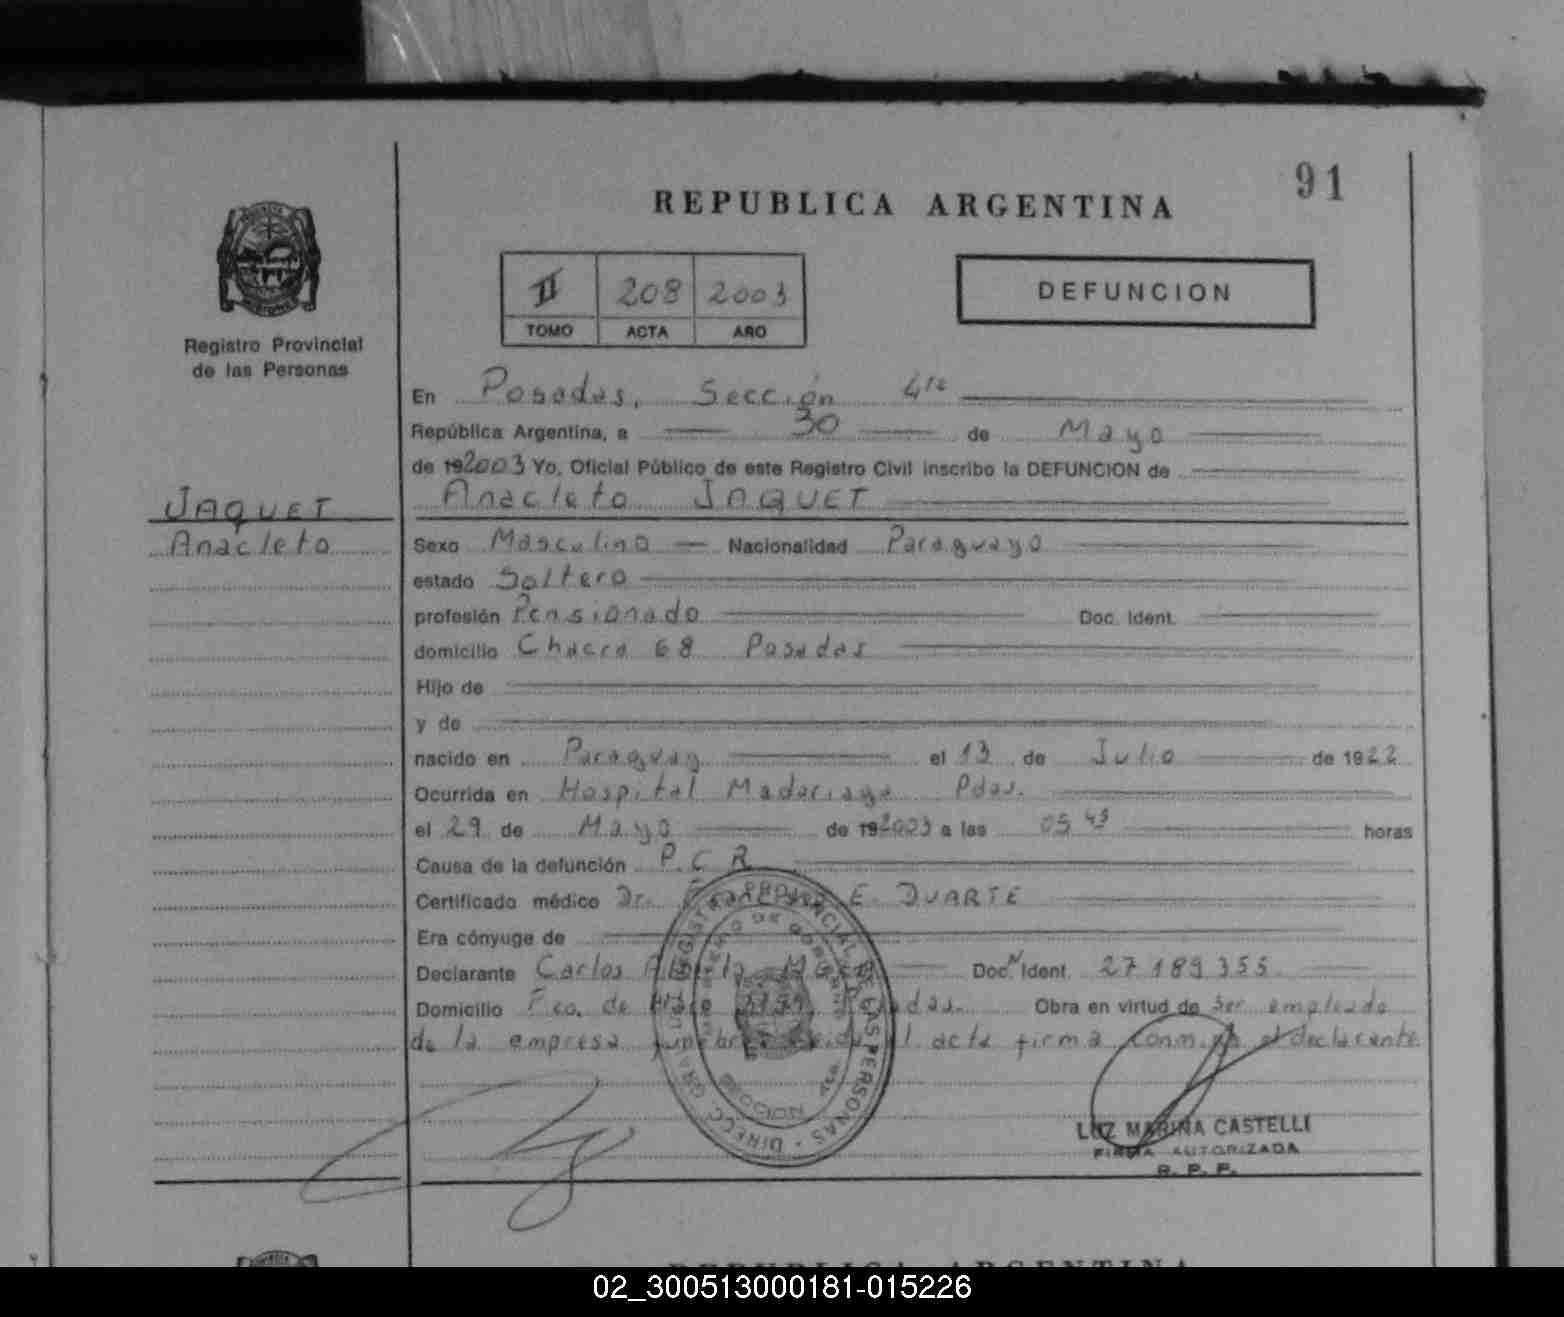 91
REPUBLICA ARGENTINA
II 208 2003
TOMO ACTA AÑO
DEFUNCION
Registro Provincial
de las Personas
En Posadas, Sección 4ta
República Argentina, a 30 de Mayo
de 192003 Yo, Oficial Público de este Registro Civil inscribo la DEFUNCION de
JAQUET
Anacleto JAQUET
Anacleto
Sexo Masculino Nacionalidad Paraguayo
estado Soltero
profesión Pensionado Doc. Ident.
domicilio Chacra 68 Posadas
Hijo de
y de
nacido en Paraguay el 13 de Julio de 1922
Ocurrida en Hospital Madariaga Pdas.
el 29 de Mayo de 192003 a las 05 45 horas
Causa de la defunción P.C.R.
Certificado médico Dr. E. DUARTE
Era cónyuge de
Declarante Carlos Doc. Ident. 27189355
Domicilio Fco. de Haro Posadas. Obra en virtud de ser empleado
de la empresa fúnebre leida el acta firma conmigo el declarante
REGISTRO PROVINCIAL DE LAS PERSONAS - DIRECC. GRAL.
MINISTERIO DE GOBIERNO
LUZ MARINA CASTELLI
FIRMA AUTORIZADA
R. P. P.
REPUBLICA ARGENTINA
02_300513000181-015226